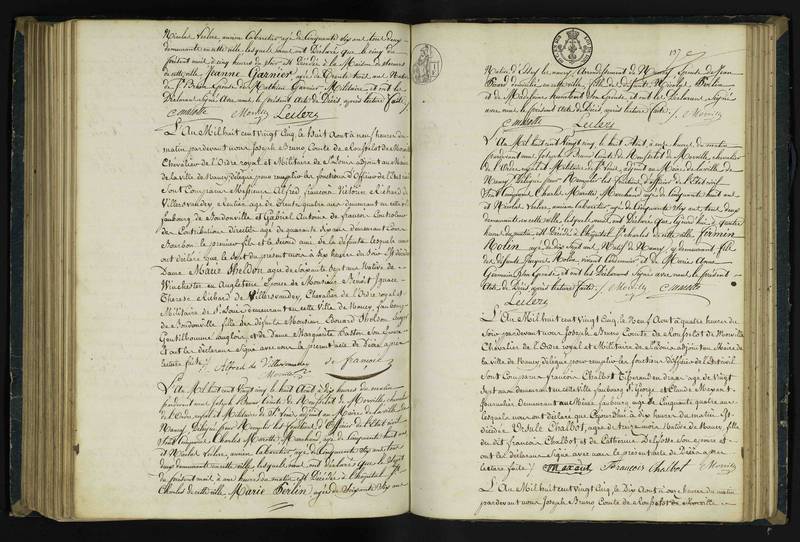 Nicolas Leclerc, ancien Cabaretier agé de Cinquante Six ans tous deux
demeurants en cette ville, lesquels nous ont Déclaré que le cinq du
présent mois à cinq heures du soir est Décédée à la Maison de
de cette ville Jeanne Garnier, agée de trente
de St. épouse de Mathieu Garnier Militaire, et ont les
Déclarans Signé avec nous le présent Acte de Décès après lecture faite
C. marotte Morville Leclerc
L'An Mil huit cent vingt Cinq, le huit Aout à neuf heures du
matin pardevant nous Joseph Bruno Comte de Rousselot de Morville
Chevalier de l'Ordre royal et Militaire de St. Louis adjoint au Maire
de la ville de Nancy délégué pour remplir les fonctions d'Officier de l'Etat civil
Sont Comparus Messieurs Alfred françois Victorin Richard de
Villersvaudey Rentier agé de trente quatre ans demeurant
faubourg de Boudonville et Gabriel Antoine de françois Controleur
des Contributions directes agé de quarante six ans demeurant Cours
Bourbon le premier fils et le second ami de la défunte lesquels nous
ont déclaré que le Sept du présent mois à dix heures du Soir est Décédée
Dame Marie Sheldon agée de Soixante Sept ans Native de
Winchester en Angleterre Epouse de Monsieur Benoit Ignace
Therese Richard de Villersvaudey, Chevalier de l'Ordre royal et
Militaire de St. Louis demeurant en cette Ville de Nancy, faubourg
de Boudonville fille des défunts Monsieur Edouard Sheldon
Gentilhomme anglois, et de Dame Marguerite son Epouse
et ont les déclarans Signé avec nous le présent acte de Décès après
lecture faite / Alfred de Villersvaudey de françois
Morville
L'An Mil huit cent vingt Cinq, le huit Aout à dix heures du matin
pardevant nous Joseph Bruno Comte de Rousselot de Morville, chevalier
de l'Ordre royal et Militaire de St. Louis, adjoint au Maire de la ville de
Nancy, Délégué pour Remplir les fonctions d'Officier de l'Etat civil
Sont Comparus Charles Marotte Marchand agé de Cinquante huit ans
et Nicolas Leclerc, ancien Cabaretier, agé de Cinquante Six ans tous
deux demeurants en cette ville, lesquels nous ont déclaré que le Sept
du présent mois à une heure du matin est Décédée à l'hôpital St.
Charles de cette ville, Marie Ferlin, agée de Soixante Six ans
137
Native d'Essey les nancy, Arrondissement de Nancy, Epouse de Jean
domicilié en cette ville, fille de défunts Nicolas Ferlin
et de Madelaine son Epouse, et ont les Déclarans Signé
avec nous le présent Acte de Décès après lecture faite. / Morville
C. marotte Leclerc
L'An Mil huit cent Vingt Cinq, le huit Aout, à onze heures du matin
pardevant nous Joseph Bruno Comte de Rousselot de Morville, chevalier
de l'Ordre royal et Militaire de St. Louis, adjoint au Maire de la ville de
Nancy, Délégué pour Remplir les fonctions d'Officier de l'Etat civil
Sont Comparus Charles Marotte, Marchand agé de Cinquante huit ans
et Nicolas Leclerc, ancien Cabaretier agé de Cinquante Six ans tous deux
demeurants en cette ville, lesquels nous ont Déclaré que à quatre
heures du matin est Décédé à l'hôpital St. Charles de cette ville, Firmin
Nolin agé de dix Sept ans, Natif de Nancy y demeurant fils
de défunts Jacques Nolin, vivant et de Marie Anne
Germain Son Epouse, et ont les Déclarans Signé avec nous le présent
Acte de Décès après lecture faite. / Morville C. marotte
Leclerc
L'An Mil huit cent vingt Cinq, le Neuf Aout à quatre heures du
Soir pardevant nous Joseph Bruno Comte de Rousselot de Morville
Chevalier de l'Ordre royal et Militaire de St. Louis adjoint au Maire de
la ville de Nancy délégué pour remplir les fonctions d'Officier de l'Etat civil
Sont Comparus françois Chalbot agé de vingt
Sept ans demeurant en cette Ville faubourg St. George et Claude
Journalier Demeurant au Même faubourg agé de Cinquante quatre ans
lesquels nous ont déclaré que Cejourd'hui à dix heures du matin est
décédée Ursule Chalbot, agée de treize mois Native de Nancy, fille
du dit françois Chalbot et de Catherine Son épouse et
ont les déclarans Signé avec nous le présent acte de Décès après
lecture faite / François Chalbot Morville
L'An Mil huit cent vingt Cinq, le Dix Aout à onze heures du matin
pardevant nous Joseph Bruno Comte de Rousselot de Morville